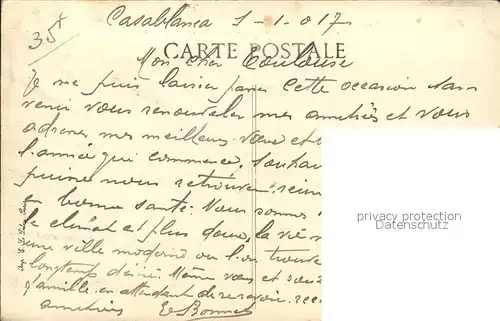 35x
Casablanca 1-1.017
CARTE POSTALE
Mon cher Toulouse
Je ne puis laisser passer cette occasion sans
venir vous renouveler mes amitiés et vous
adresser mes meilleurs vœux et
l'année qui commence, Souhai
puisse nous retrouver réuni
en bonne santé. Nous sommes
le climat est plus doux, la vie
une ville moderne ou l'on trouve
longtemps désiré. Même vous et
famille en attendant de recevoir
amitiés E. Bonnet
privacy protection
Datenschutz